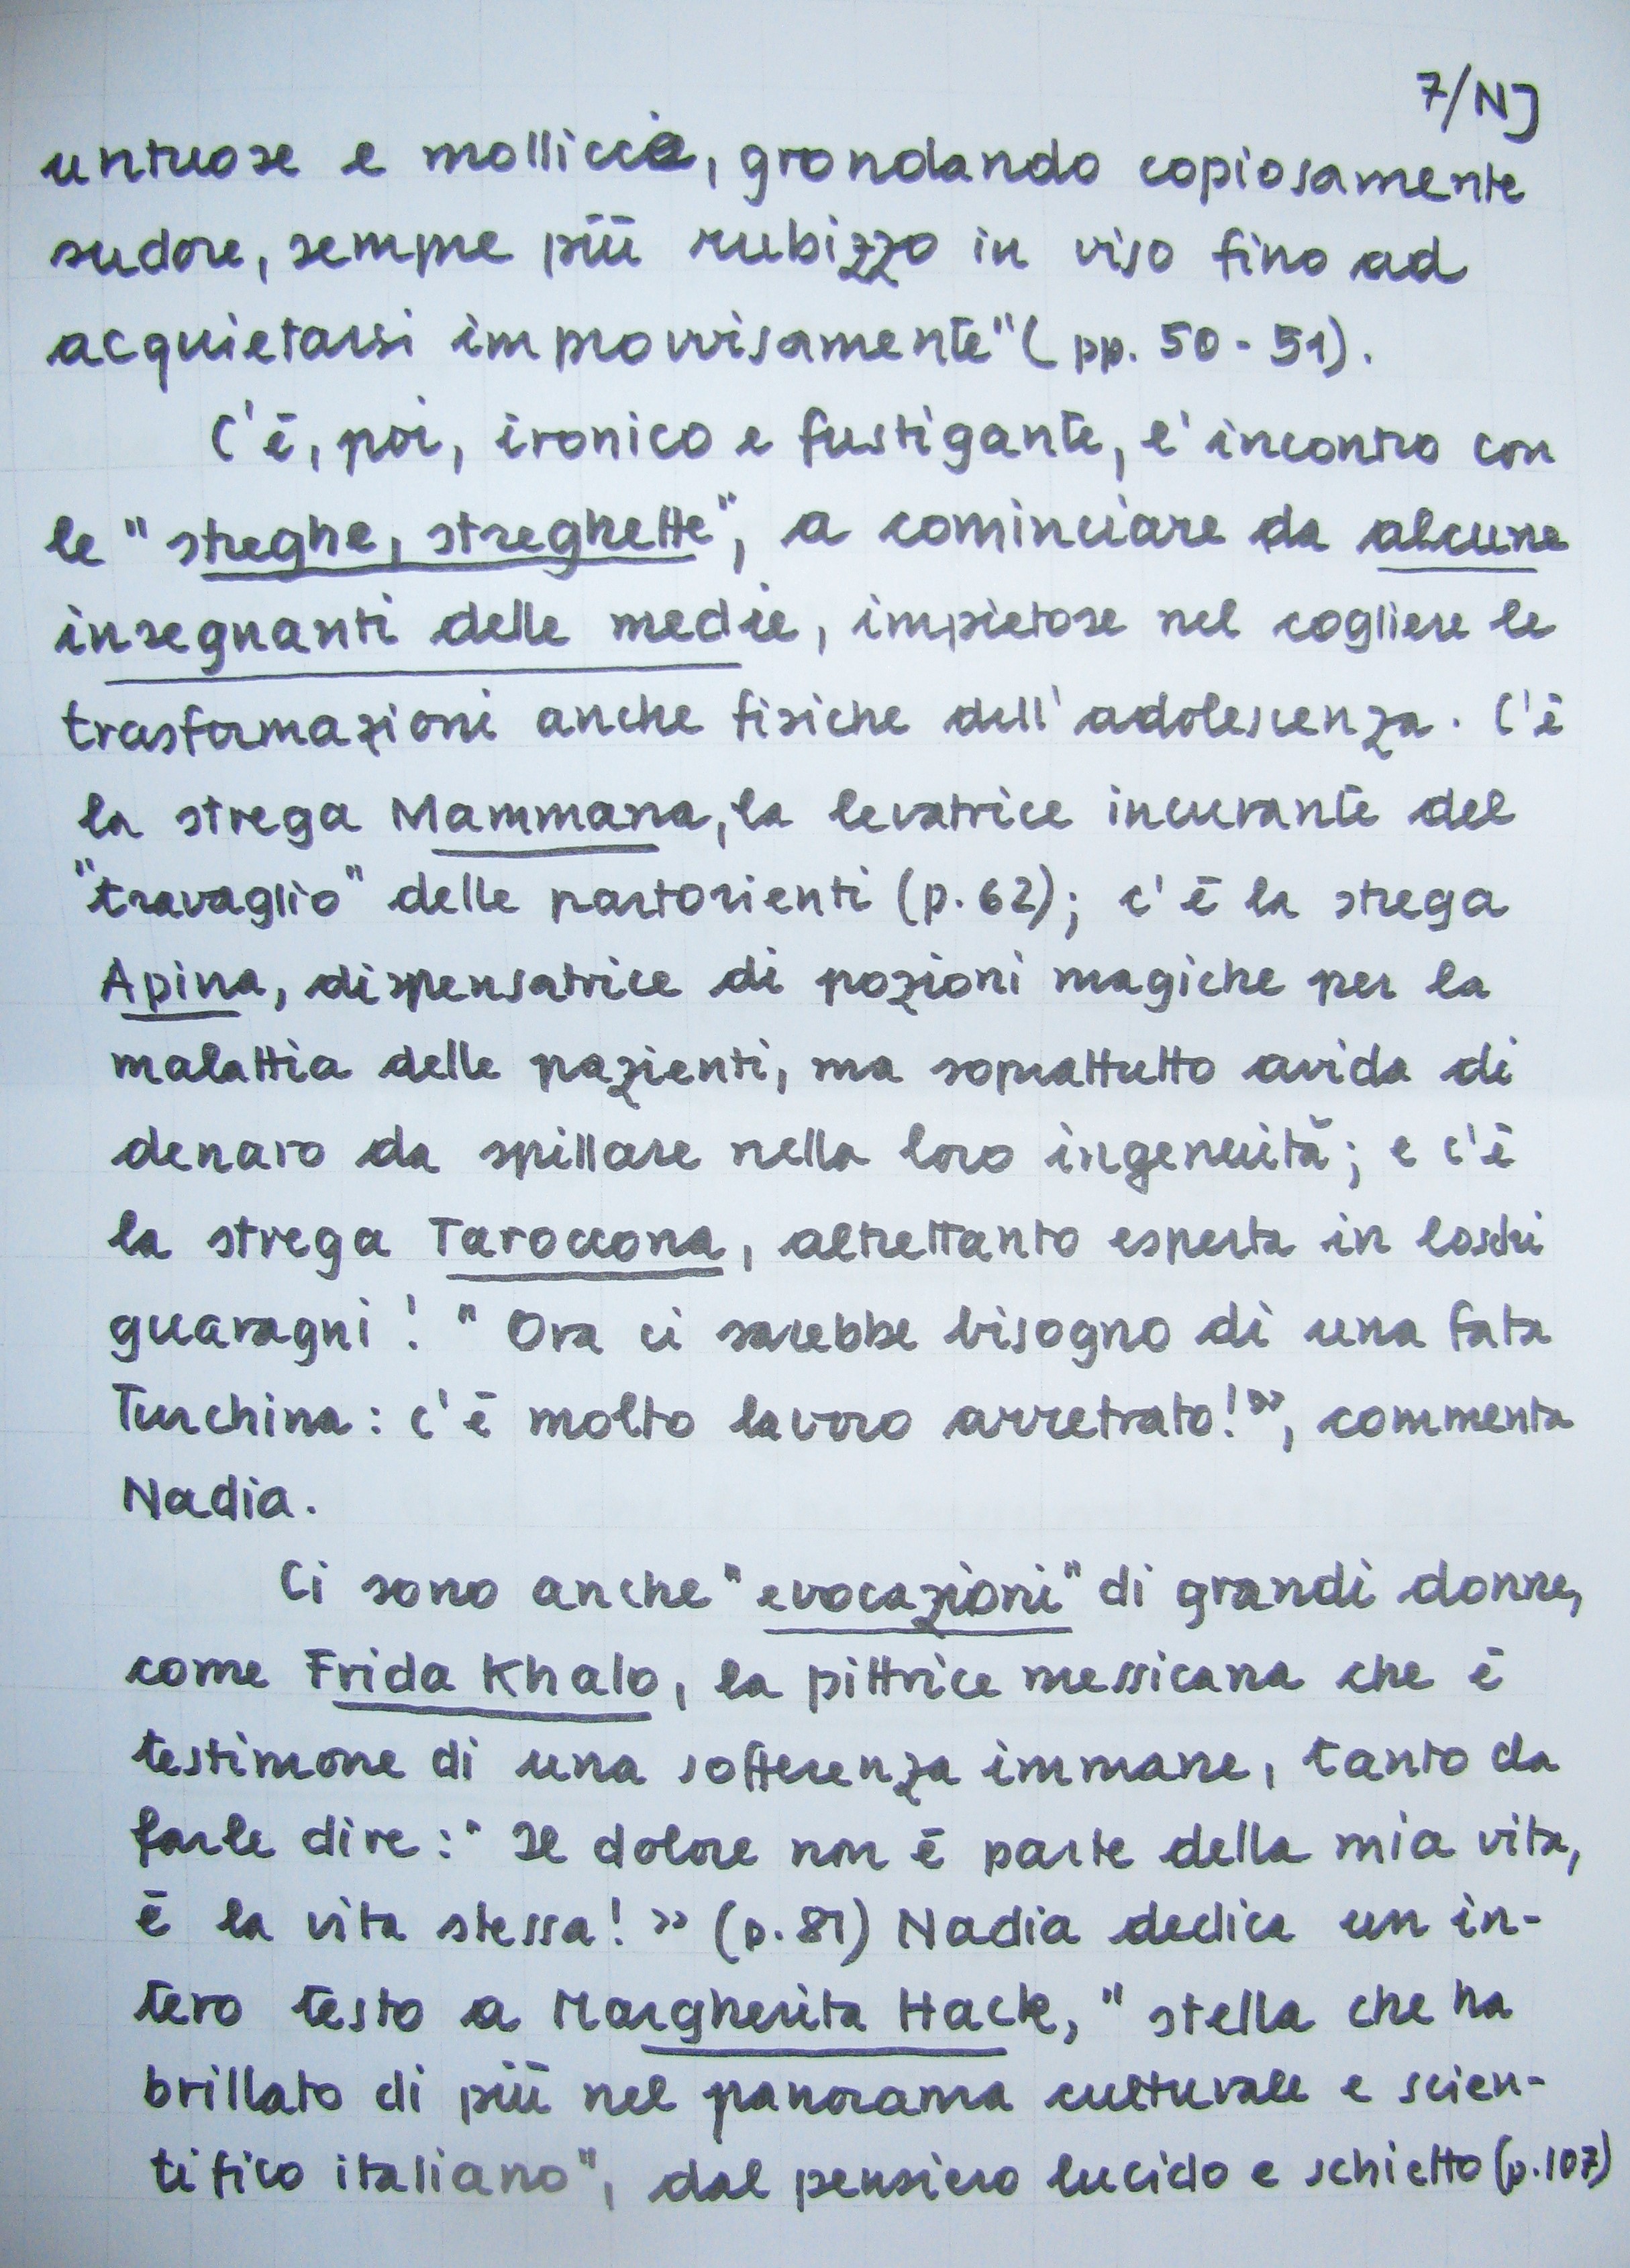 7/NJ
untuose e molliccie, grondando copiosamente
sudore, sempre più rubizzo in viso fino ad
acquietarsi improvvisamente" (pp. 50-51).
C'è, poi, ironico e fustigante, l'incontro con
le "streghe, streghette", a cominciare da alcune
insegnanti delle medie, impietose nel cogliere le
trasformazioni anche fisiche dell'adolescenza. C'è
la strega Mammana, la levatrice incurante del
"travaglio" delle partorienti (p. 62); c'è la strega
Apina, dispensatrice di pozioni magiche per la
malattia delle pazienti, ma soprattutto avida di
denaro da spillare nella loro ingenuità; e c'è
la strega Taroccona, altrettanto esperta in loschi
guaragni! "Ora ci sarebbe bisogno di una fata
Turchina: c'è molto lavoro arretrato!», commenta
Nadia.
Ci sono anche "evocazioni" di grandi donne,
come Frida Khalo, la pittrice messicana che è
testimone di una sofferenza immane, tanto da
farle dire: "Il dolore non è parte della mia vita,
è la vita stessa!» (p. 81) Nadia dedica un in-
tero testo a Margherita Hack, "stella che ha
brillato di più nel panorama culturale e scien-
tifico italiano", dal pensiero lucido e schietto (p. 107)